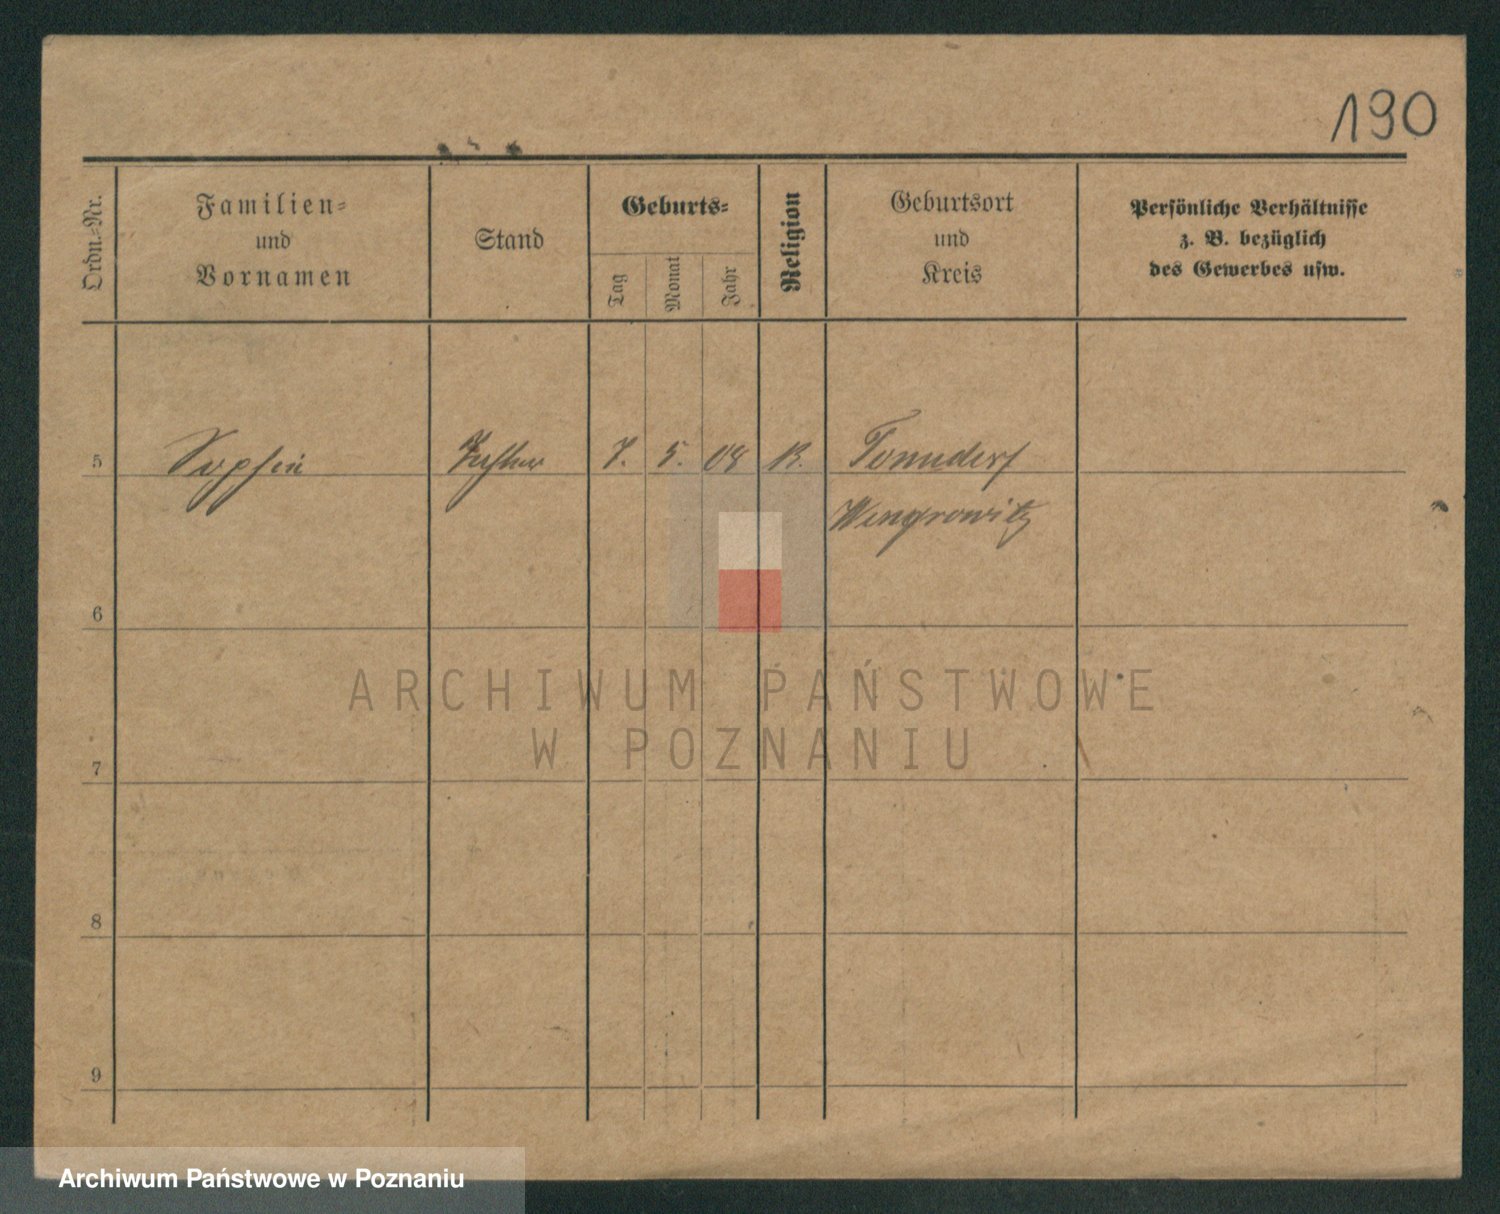 190
Ordn.-Nr.
Familien-
und
Vornamen
Stand
Geburts-
Tag
Monat
Jahr
Religion
Geburtsort
und
Kreis
Persönliche Verhältnisse
z. B. bezüglich
des Gewerbes usw.
5 Sophie Tochter 7. 5. 08 K. Tonndorf
Wongrowitz
6
7
8
9
ARCHIWUM PAŃSTWOWE
W POZNANIU
Archiwum Państwowe w Poznaniu